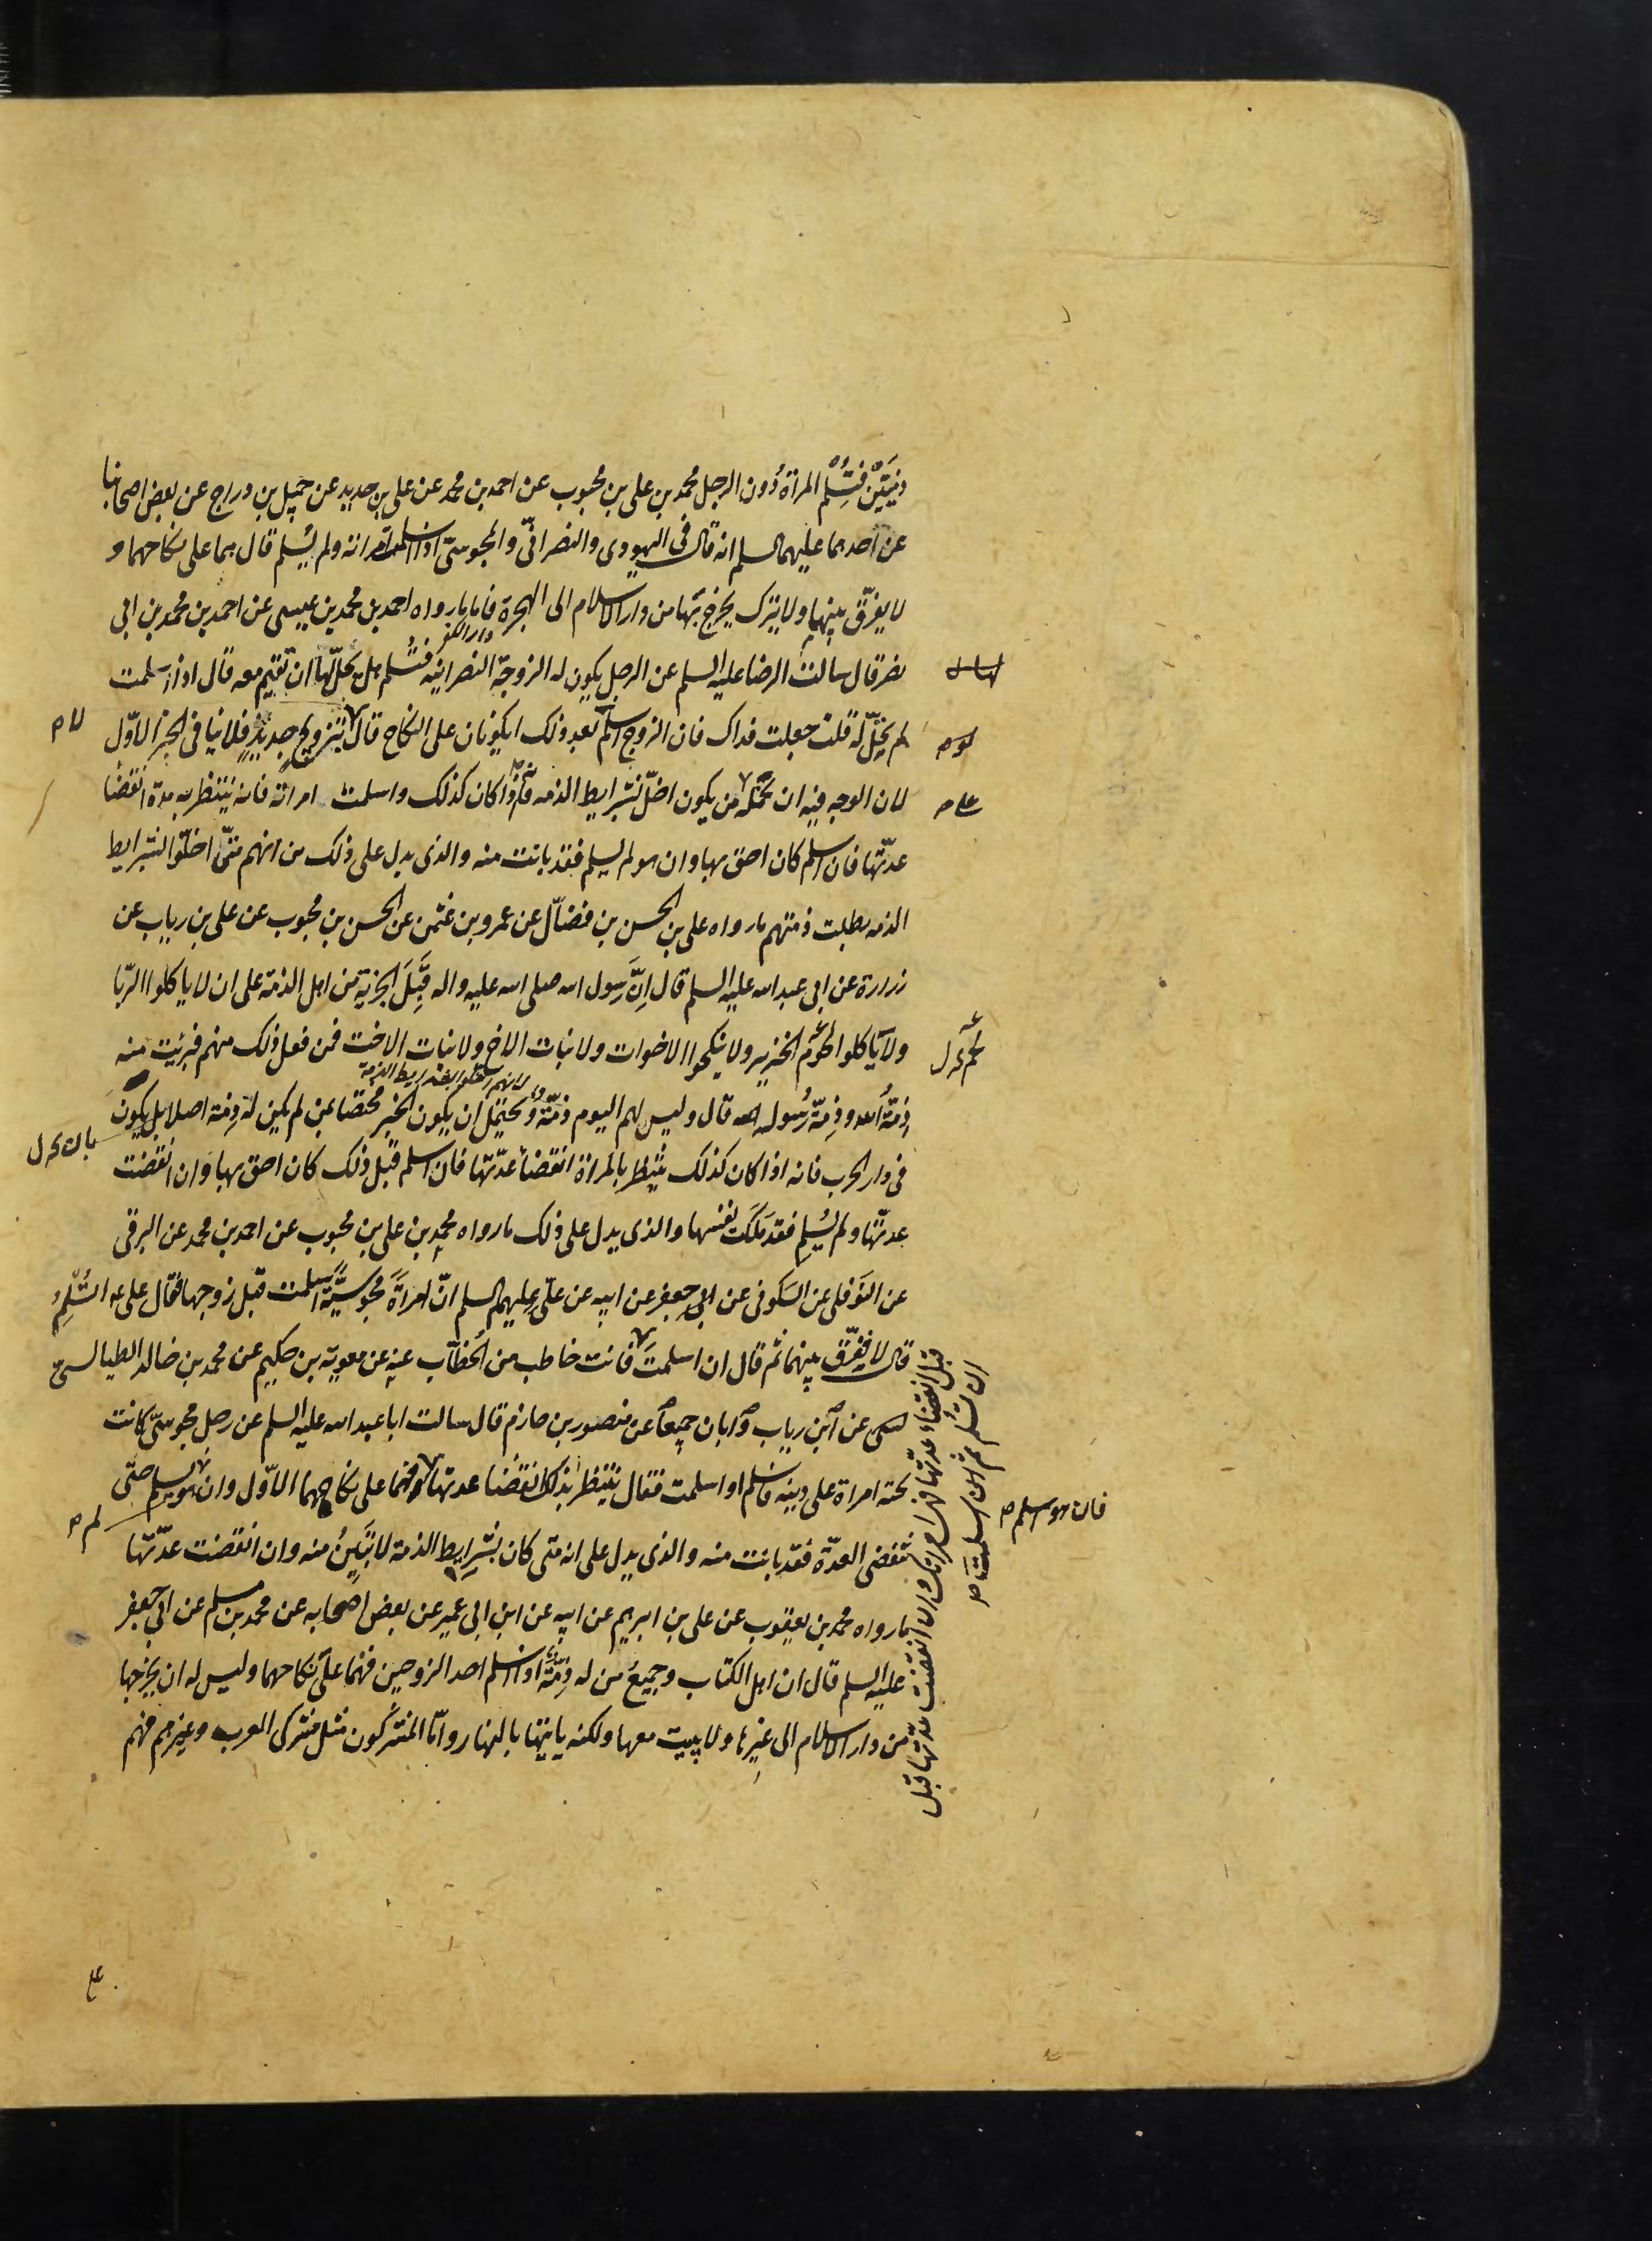 دنيتين فتسلم المراة دون الرجل محمد بن على بن محبوب عن احمد بن محمد عن على بن حديد عن جميل بن دراج عن بعض اصحابنا
عن احدهما عليهما السلم انه قال فى اليهودى والنصرانىّ والمجوسىّ اذا اسلمت امراته ولم يُسلم قال هما على نكاحهما و
لا يفرّق بينهما ولا يترك يخرج بها من دار الاسلام الى الهجرة فاما ما رواه احمد بن محمد بن عيسى عن احمد بن محمد بن ابى
دار الكفر
نصر قال سالت الرضا عليه السلم عن الرجل يكون له الزوجة النصرانيه فتسلم هل يحلّ لها ان تقيم معه قال اذا اسلمت
لم يحلّ له قلت جعلت فداك فان الزوج اسلم بعد ذلك ايكونان على النكاح قال لا بتزويج جديد فلا ينافى الخبر الاوّل
لان الوجه فيه ان نحمله من يكون اخلّ بشرايط الذمه فانّه اذا كان كذلك واسلمت امراته فانه ينتظر به مدة انقضا
عدّتها فان اسلم كان احق بها وان هو لم يسلم فقد بانت منه والذى يدل على ذلك من انهم متىّ اخلّوا بشرايط
الذمه بطلت ذمتهم ما رواه على بن الحسن بن فضّال عن عمرو بن عثمن عن الحسن بن محبوب عن على بن رياب عن
زرارة عن ابى عبد الله عليه السلم قال اِنّ رَسول الله صلى الله عليه واله قَبِلَ الجزية من اهل الذمة على ان لا ياكلوا الرّبا
ولا ياكلوا لحوم الخنزير ولا ينكحوا الاخوات ولا بنات الاخ ولا بنات الاخت فمن فعل ذلك منهم فبرئت منه
ذِمّةُ الله وذِمّة رَسُوله قال وليس لهم اليوم ذمّة ويحتمل ان يكون الخبر مختصا بمن لم يكن له ذِمّة اصلا بل يكون
فى دار الحرب فانه اذا كان كذلك ينتظر بالمراة انقضاء عدّتها فان اسلم قبل ذلك كان احق بها وان انقضت
عدتّها ولم يُسلم فقد مَلَكت نفسها والذى يدل على ذلك ما رواه محمد بن على بن محبوب عن احمد بن محمد عن البرقى
عن النَوفلى عن السَكونى عن ابى جعفر عن ابيه عن علىّ عليهم السلم انّ امراَةً مجوسيّة اسلمت قبل زوجها فقال على ع اتُسْلِمُ
قال لا ففرّق بينهما ثم قال ان اسلمتَ فانت خاطب من الخطّاب عنه عن معوية بن حكيم عن محمد بن خالد الطيالسىّ
عن ابن رياب وابان جميعاً عن منصور بن حازم قال سالت ابا عبد الله عليه السلم عن رجل مجوسىّ كانت
تحته امراة على دينه فاسلم او اسلمت فقال ينتظر بذلك انقضا عدتها فهما على نكاحهما الاوّل وان هو يسلم حتّى
تنقضى العدّة فقد بانت منه والذى يدل على انه متى كان بشرايط الذمة لا تَبِينُ منه وان انقضت عدّتها
ما رواه محمد بن يعقوب عن على بن ابرهيم عن ابيه عن ابن ابى عمير عن بعض اصحابه عن محمد بن مسلم عن ابى جعفر
عليه السلم قال ان اهل الكتاب وجميعُ من له ذِمّة اذا اسلم احد الزوجين فهُما على نكاحهما وليس له ان يخرجها
من دار الاسلام الى غيرها ولا يبيت معها ولكنه ياتيها بالنهار وامّا المشركون مثل مشركى العرب وغيرهم فهم
ان تسلم ثم ان اسلمت ص
قبل انقضاء عدّتها فهى امراتك وان انقضت عدّتها قبل
فان هو اسلم ص
لم ص